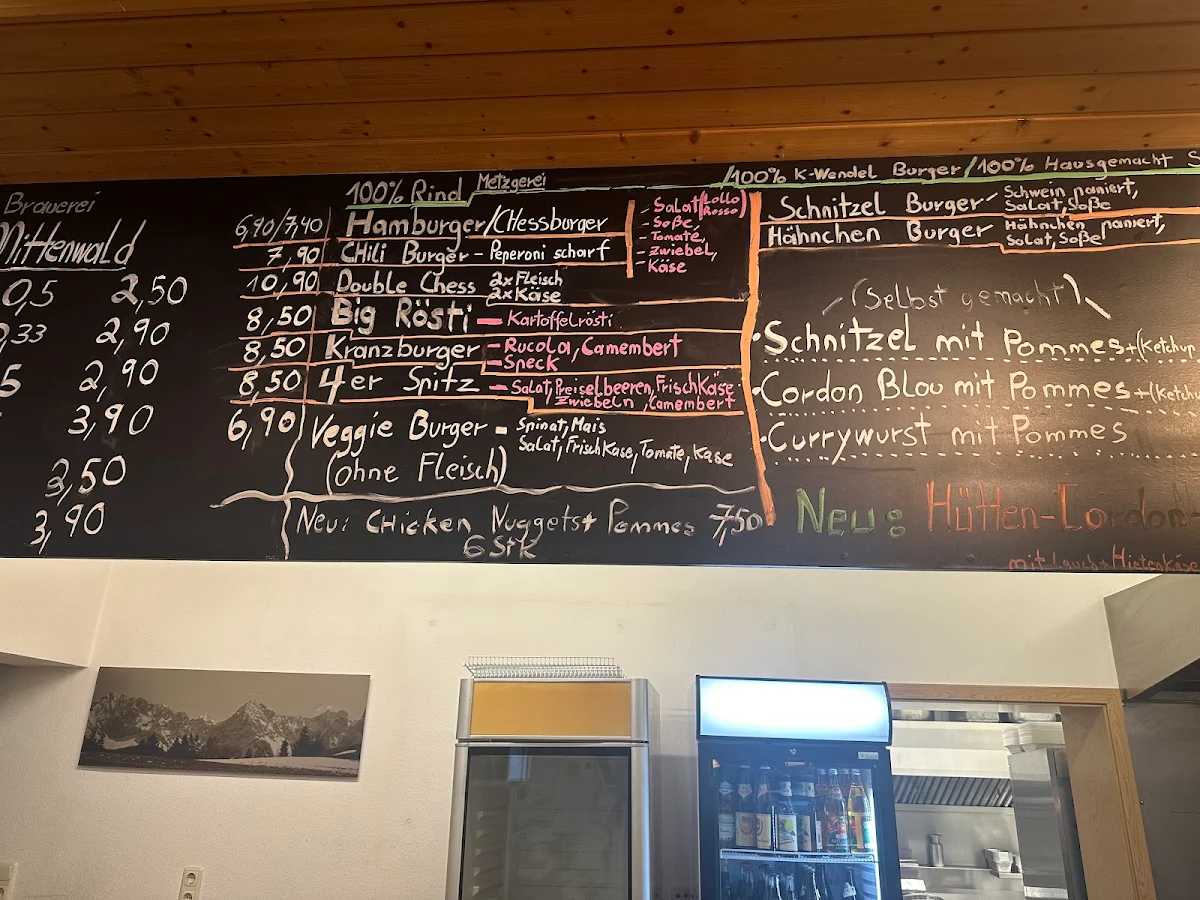 Brauerei
Mittenwald
0,5 2,50
0,33 2,90
5 2,90
3,90
3,50
3,90
100% Rind Metzgerei
6,90/7,40 Hamburger/CHessburger
7,90 CHili Burger - Peperoni scharf
- Salat (Lollo Rosso)
- Soße,
- Tomate,
- Zwiebel,
- Käse
10,90 Double Chess 2x Fleisch
2x Käse
8,50 Big Rösti - Kartoffelrösti
8,50 Kranzburger - Rucola, Camembert
- Speck
8,50 4er Spitz - Salat, Preiselbeeren, FrischKäse
Zwiebeln, Camembert
6,90 Veggie Burger - Spinat, Mais
Salat, FrischKäse, Tomate, Käse
(ohne Fleisch)
Neu: CHicken Nuggets+ Pommes 7,50
6 Stk
/100% K-Wendel Burger/100% Hausgemacht S
Schnitzel Burger - Schwein paniert,
Salat, Soße
Hähnchen Burger Hähnchen paniert,
Salat, Soße
(Selbst gemacht)
• Schnitzel mit Pommes+(Ketchup
• Cordon Blou mit Pommes+(Ketchu
• Currywurst mit Pommes
Neu: Hütten-Cordon
mit Lauch+Hirtenkäse